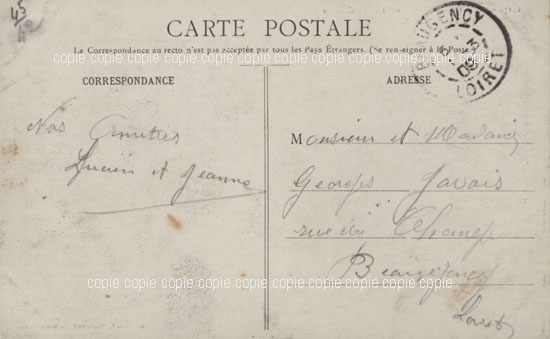 45
CARTE POSTALE
La Correspondance au recto n'est pas acceptée par tous les Pays Étrangers. (Se renseigner à la Poste)
BEAUGENCY
LOIRET
CORRESPONDANCE
ADRESSE
Nos Amitiés
Lucien et Jeanne
Monsieur et Madame
Georges Javois
rue du Change
Beaugency
Loiret
copie copie copie copie copie copie copie copie copie
copie copie copie copie copie copie copie copie copie
copie copie copie copie copie copie copie copie copie